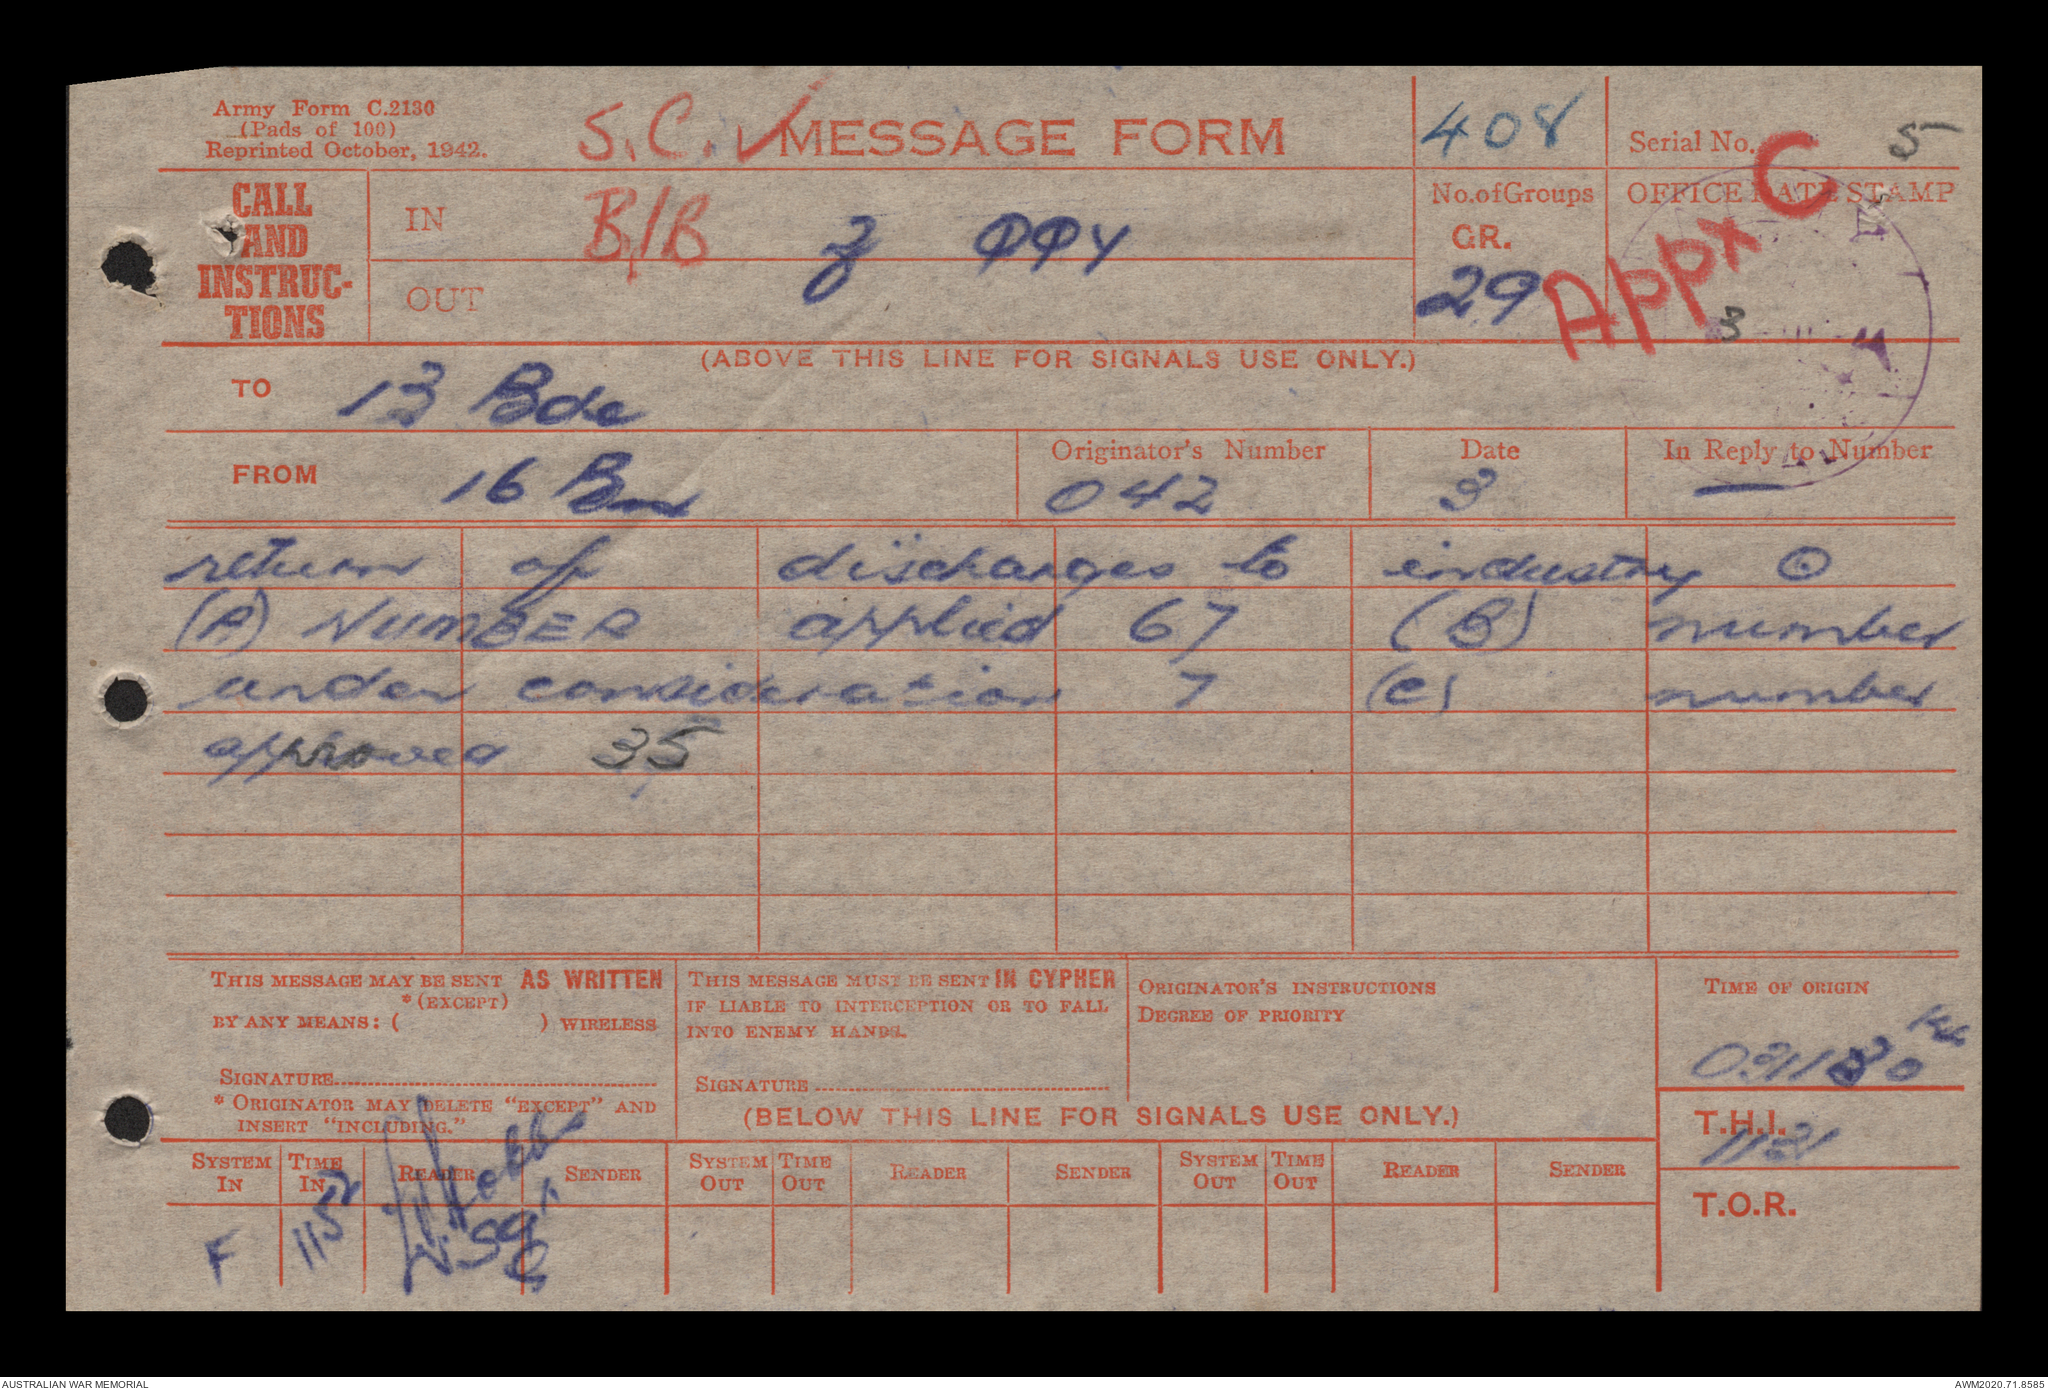 Army Form C.2130
(Pads of 100)
Reprinted October, 1942.
S.C. ✓
MESSAGE FORM
408
Serial No. 5
CALL AND INSTRUC-TIONS
IN
OUT
B/B
No. of Groups
GR.
29
OFFICE DATE STAMP
Appx C
3
(ABOVE THIS LINE FOR SIGNALS USE ONLY.)
TO 13 Bde
FROM 16 Bn
Originator's Number
042
Date
3
In Reply to Number
—
return of discharges to industry ⊙
(A) NUMBER applied 67 (B) number
under consideration 7 (C) number
approved 35
THIS MESSAGE MAY BE SENT AS WRITTEN
*(EXCEPT)
BY ANY MEANS: ( ) WIRELESS
SIGNATURE
* ORIGINATOR MAY DELETE "EXCEPT" AND
INSERT "INCLUDING."
THIS MESSAGE MUST BE SENT IN CYPHER
IF LIABLE TO INTERCEPTION OR TO FALL
INTO ENEMY HANDS.
SIGNATURE
ORIGINATOR'S INSTRUCTIONS
DEGREE OF PRIORITY
TIME OF ORIGIN
(BELOW THIS LINE FOR SIGNALS USE ONLY.)
T.H.I.
1121
T.O.R.
SYSTEM IN
TIME IN
READER
SENDER
SYSTEM OUT
TIME OUT
READER
SENDER
SYSTEM OUT
TIME OUT
READER
SENDER
F
1152
AUSTRALIAN WAR MEMORIAL
AWM2020.71.8585